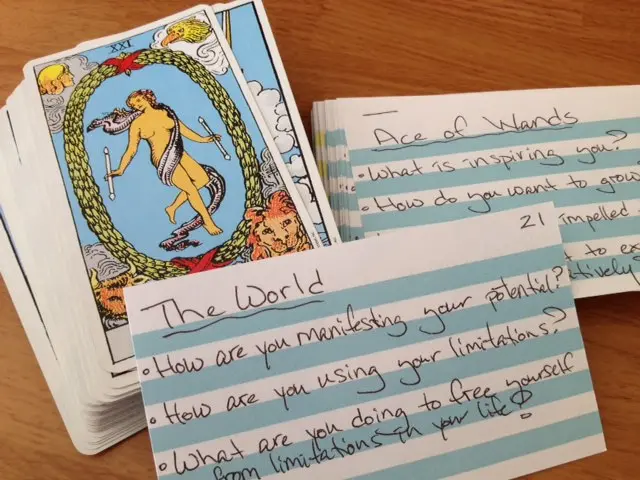 XXI
Ace of Wands
• What is inspiring you?
• How do you want to grow
impelled
to ex
atively?
21
The World
• How are you manifesting your potential?
• How are you using your limitations?
• What are you doing to free yourself
from limitations in your life?